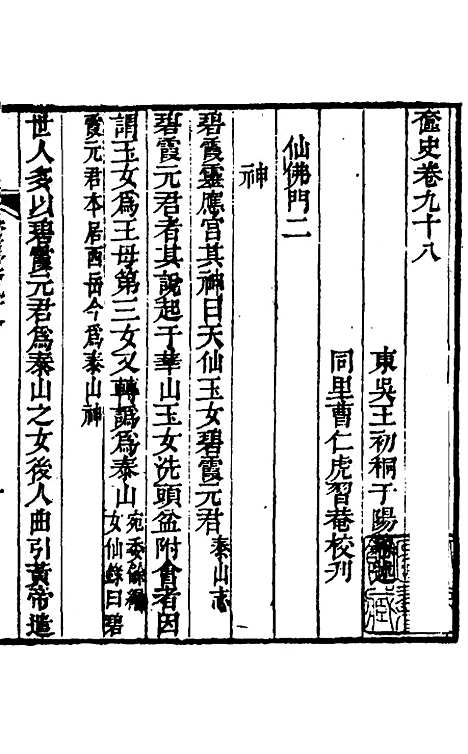 奩史卷九十八
東吳王初桐于陽纂述
同里曹仁虎習菴校刋
仙佛門二
神
碧霞靈應宮其神曰天仙玉女碧霞元君泰山志
碧霞元君者其說起于華山玉女洗頭盆附會者因
謂玉女爲王母第三女又轉譌爲泰山宛委餘編女仙錄曰碧
霞元君本居西岳今爲泰山神
世人多以碧霞元君爲泰山之女後人曲引黃帝遣